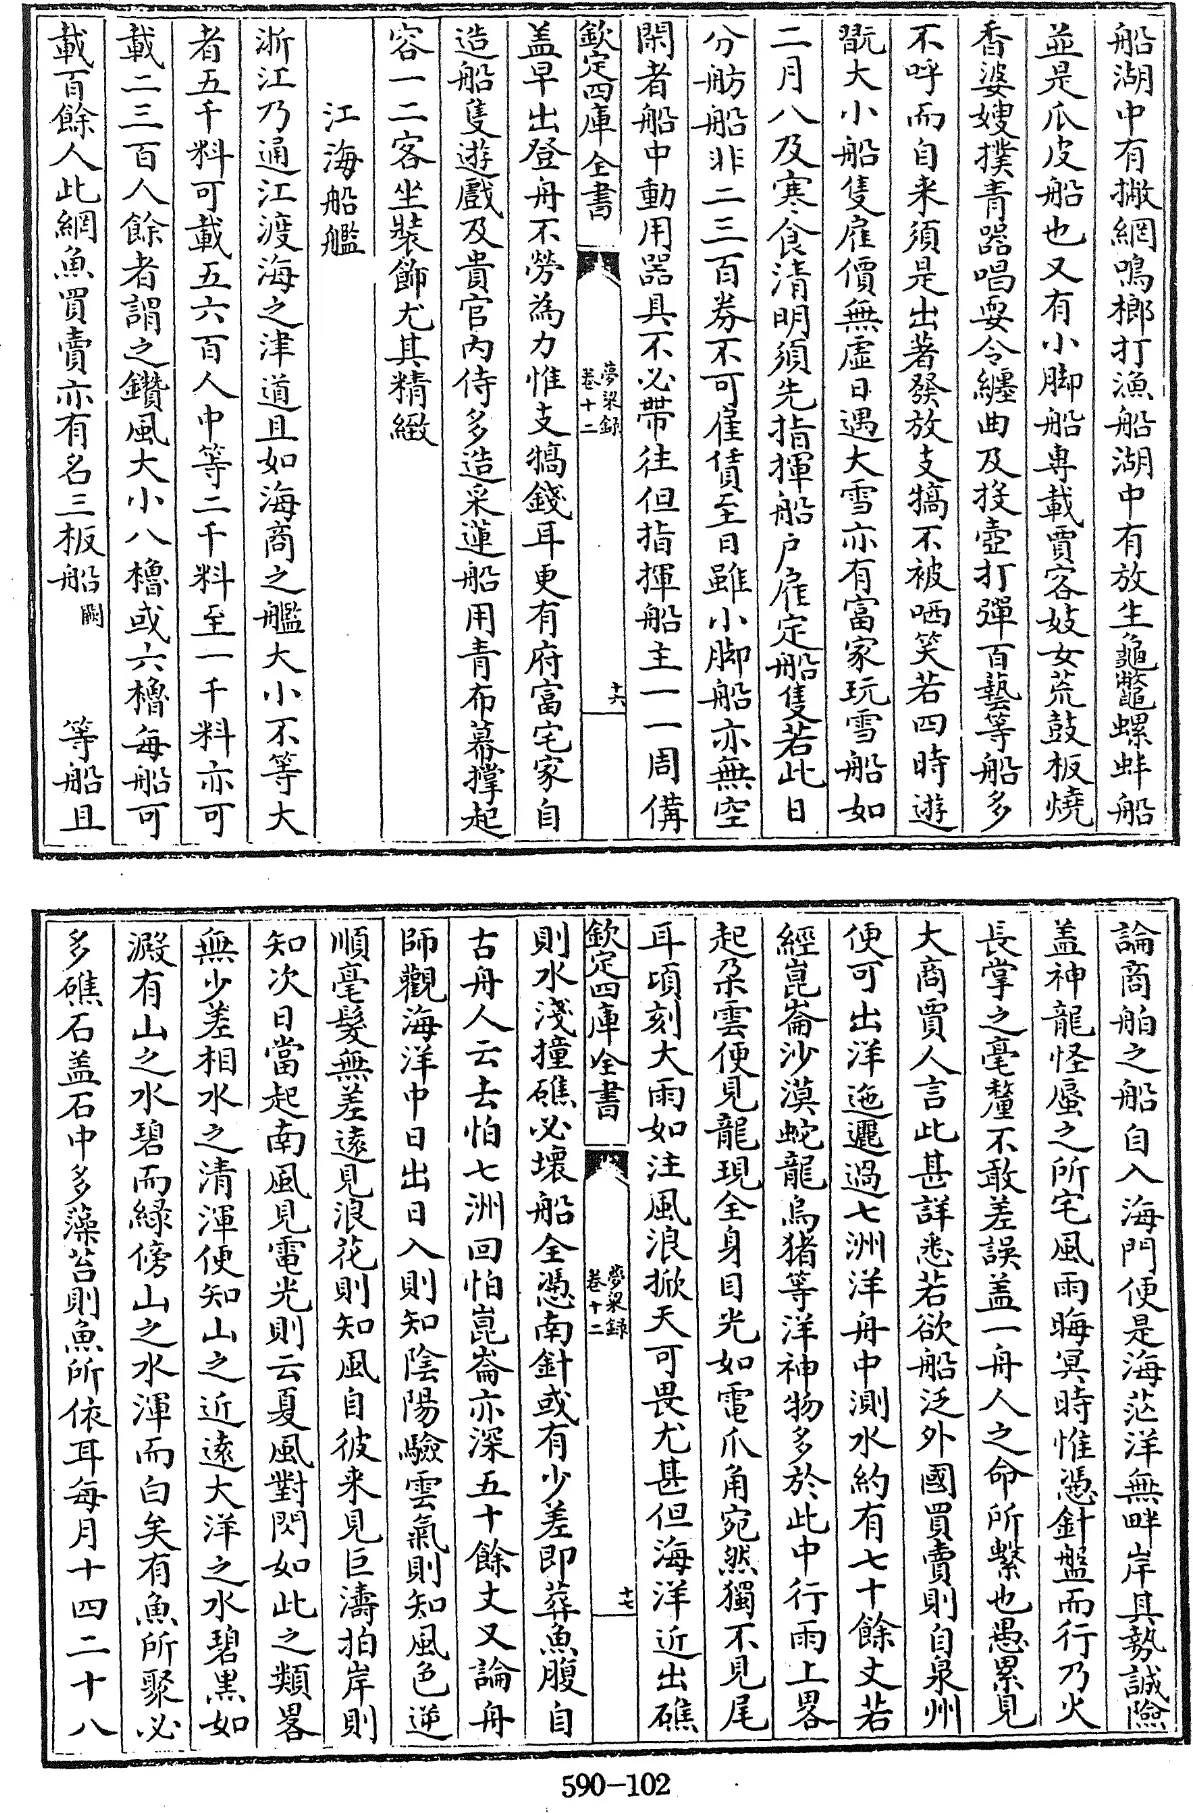 船湖中有撇網鳴榔打漁船湖中有放生龜鼈螺蚌船
並是瓜皮船也又有小脚船専載賈客妓女荒鼓板燒
香婆嫂撲青器唱耍令纏曲及投壺打彈百藝等船多
不呼而自来須是出著發放支犒不被哂笑若四時遊
翫大小船隻雇價無虛日遇大雪亦有富家玩雪船如
二月八及寒食清明須先指揮船户雇定船隻若此日
分舫船非二三百券不可雇賃至日雖小脚船亦無空
閑者船中動用器具不必帶往但指揮船主一一周備
欽定四庫全書
夢梁録
卷十二
十六
盖早出登舟不勞為力惟支犒錢耳更有府富宅家自
造船隻遊戲及貴官内侍多造采蓮船用青布幕撑起
容一二客坐裝飾尤其精緻
江海船艦
浙江乃通江渡海之津道且如海商之艦大小不等大
者五千料可載五六百人中等二千料至一千料亦可
載二三百人餘者謂之鑽風大小八櫓或六櫓每船可
載百餘人此網魚買賣亦有名三板船闕等船且
論商舶之船自入海門便是海茫洋無畔岸其勢誠險
盖神龍怪蜃之所宅風雨晦冥時惟憑針盤而行乃火
長掌之毫釐不敢差誤盖一舟人之命所繫也愚累見
大商賈人言此甚詳悉若欲船泛外國買賣則自泉州
便可出洋迤邐過七洲洋舟中測水約有七十餘丈若
經崑崙沙漠蛇龍烏猪等洋神物多於此中行雨上畧
起朶雲便見龍現全身目光如電爪角宛然獨不見尾
耳頃刻大雨如注風浪掀天可畏尤甚但海洋近出礁
欽定四庫全書
夢梁録
卷十二
十七
則水淺撞礁必壞船全憑南針或有少差即葬魚腹自
古舟人云去怕七洲回怕崑崙亦深五十餘丈又論舟
師觀海洋中日出日入則知陰陽驗雲氣則知風色逆
順毫髮無差遠見浪花則知風自彼来見巨濤拍岸則
知次日當起南風見電光則云夏風對閃如此之類畧
無少差相水之清渾便知山之近遠大洋之水碧黒如
澱有山之水碧而緑傍山之水渾而白矣有魚所聚必
多礁石盖石中多藻苔則魚所依耳每月十四二十八
590-102